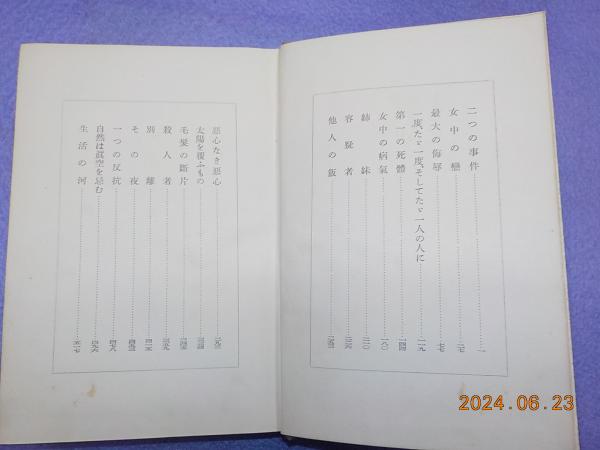 二つの事件……一
女中の戀……二七
最大の侮辱……七七
一度、たゞ一度、そしてたゞ一人の人に……一一九
第一の死體……一四四
女中の病氣……一八〇
姉妹……二一〇
容疑者
他人の飯
惡心なき惡心
太陽を覆ふもの
毛髮の斷片
殺人者
別離……四一五
その夜
一つの反抗……四七八
自然は眞空を忌む……四九六
生活の河……五一七
2024.06.23